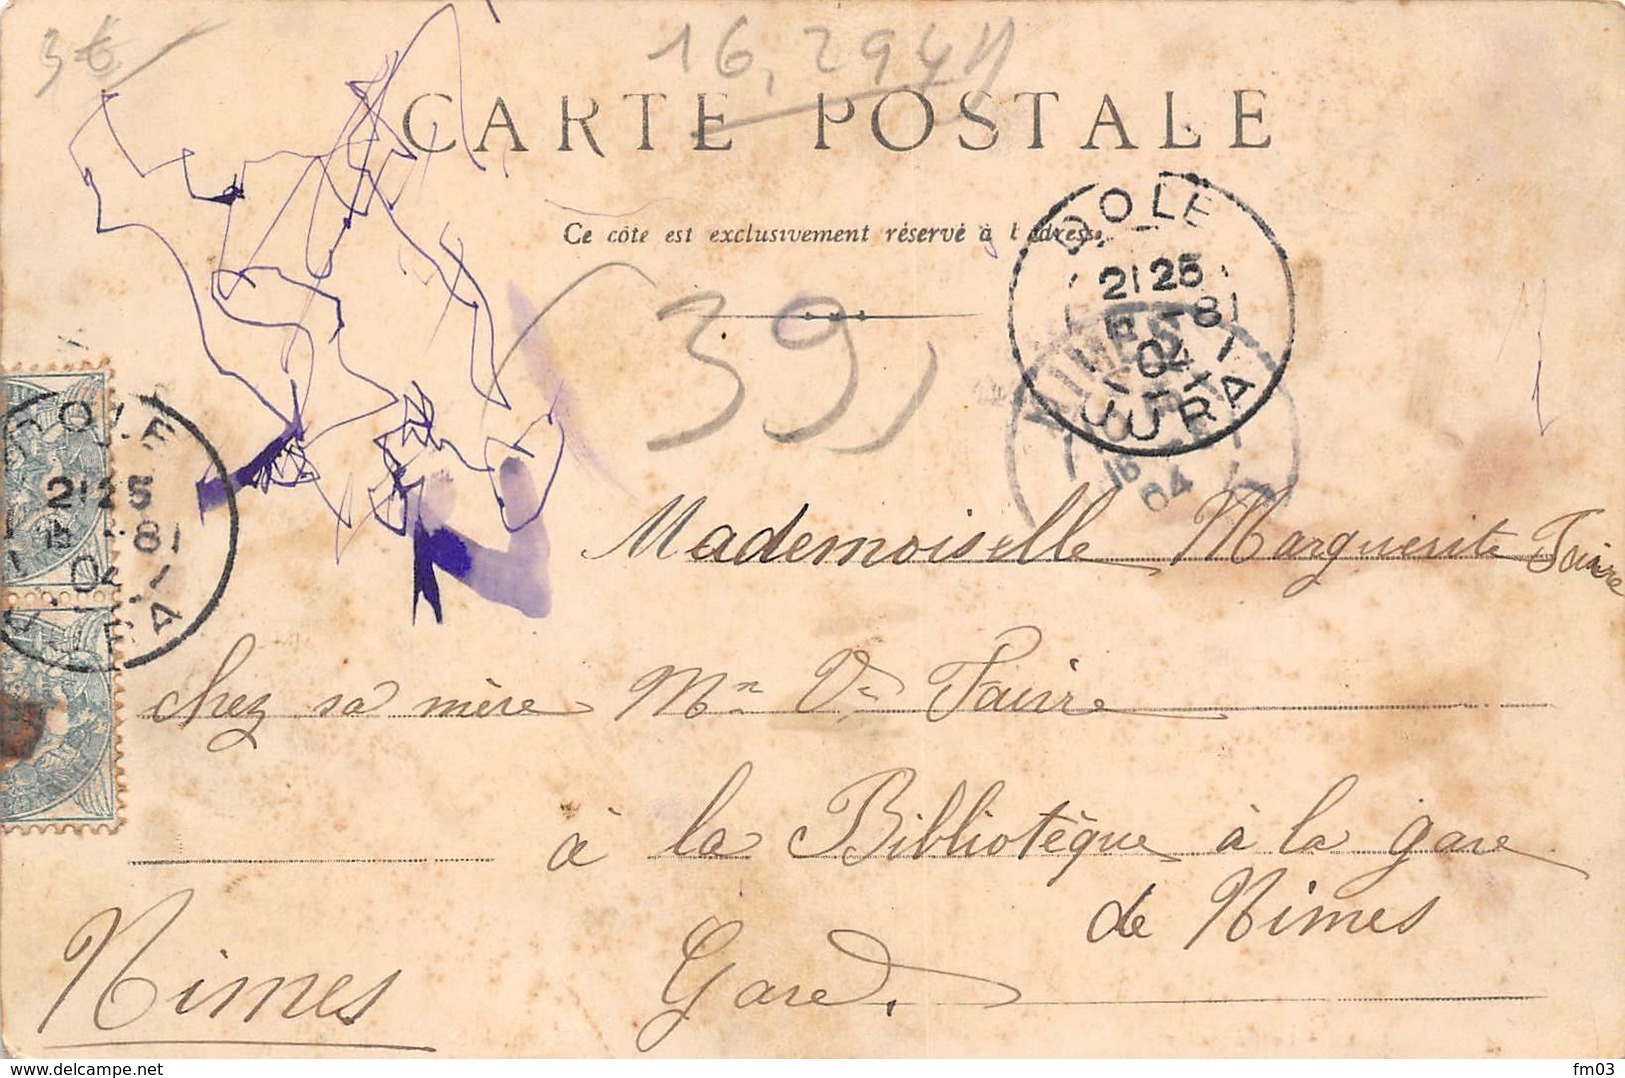 3€
16,2944
CARTE POSTALE
Ce côte est exclusivement réservé à l'adresse
39)
DOLE
21 25
81
04
JURA
NIMES
18
04
DOLE
21 25
81
04
Mademoiselle Marguerite Faivre
chez sa mère Mme Ve Faivre
à la Bibliotèque à la gare
de Nimes
Nimes Gare.
www.delcampe.net
fm03